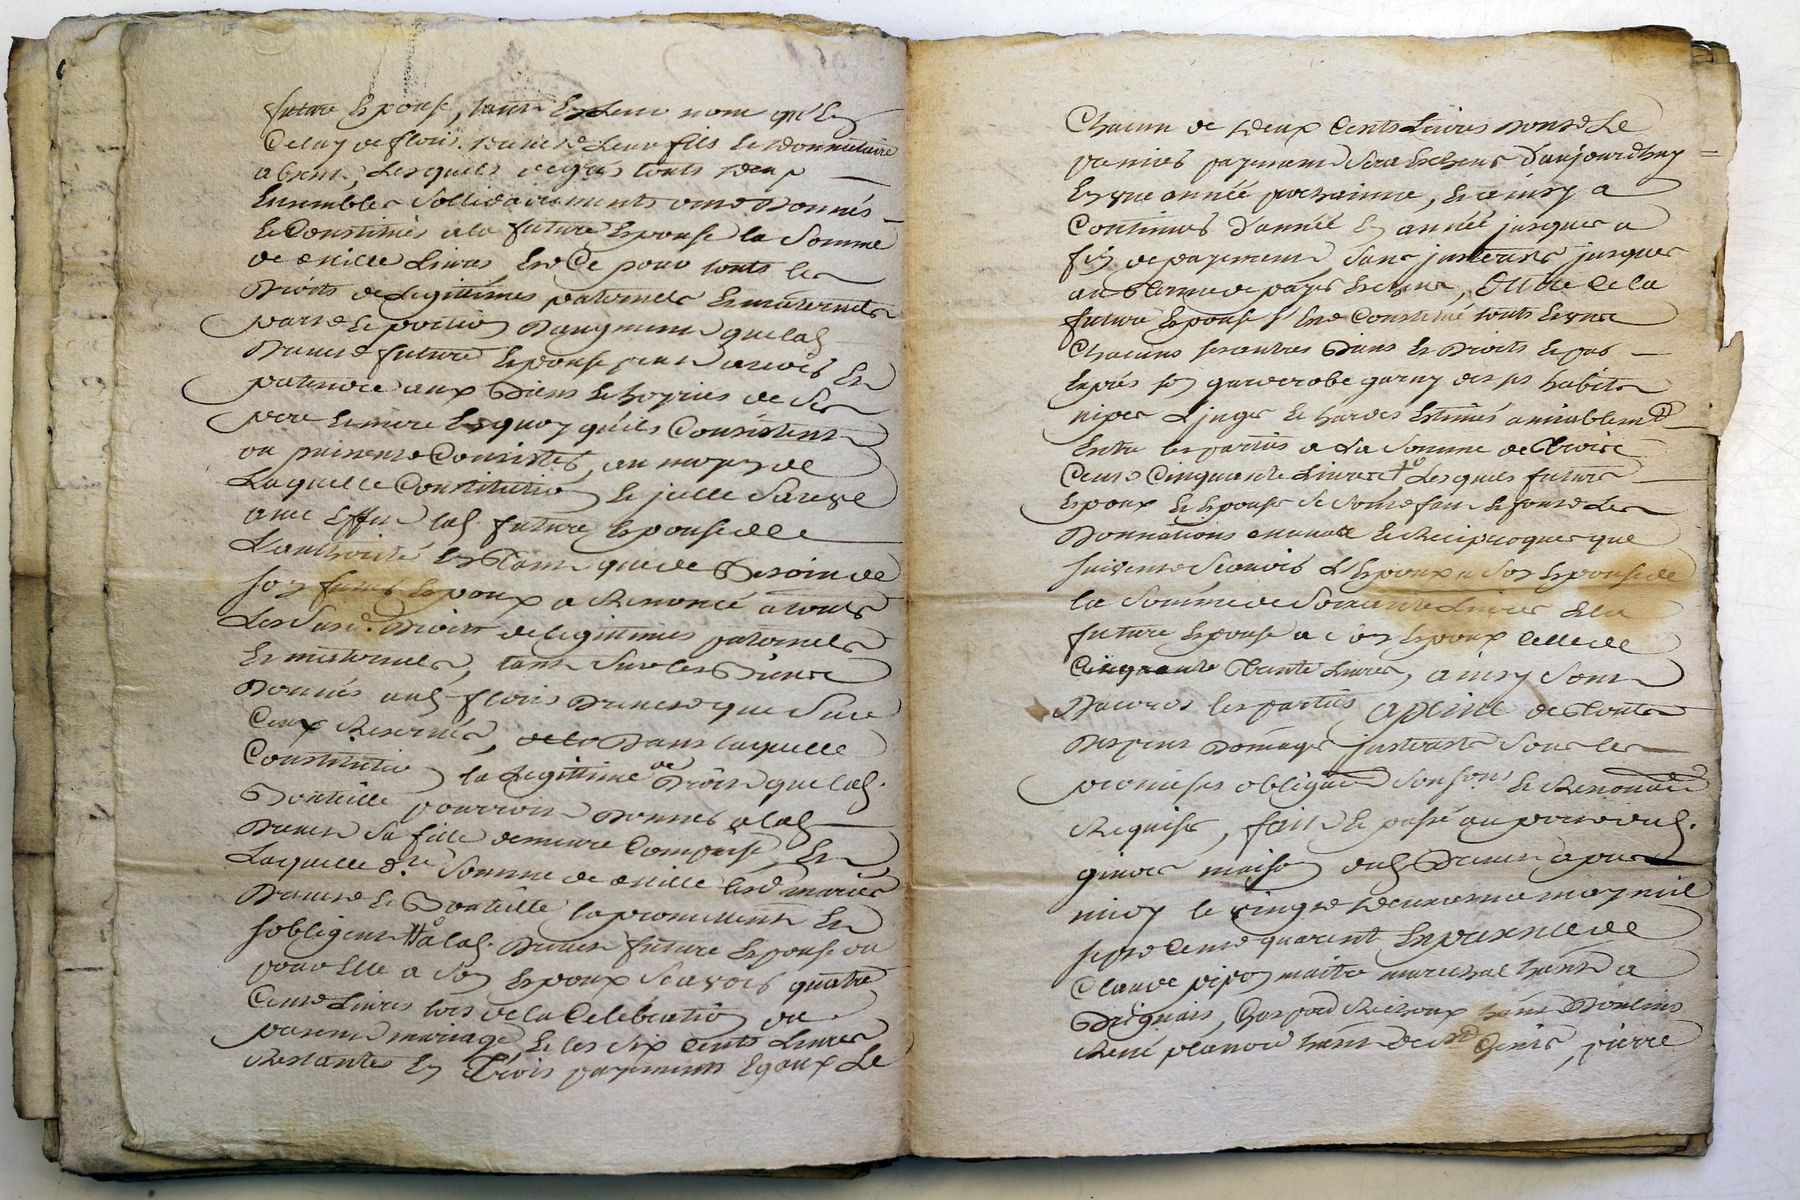 future Epouse, tant En leur nom qu'En
Celuy de fleris leur fils le donnataire
absent, Lesquels de gré touts deux
Ensembles Sollidairements ont Donnés
Et Constitués a la future Epouse la Somme
de Mille Livres, Et Ce pour touts les
Droits de Legittimes paternels Et maternels
part Et portion D'augment que lad.
future Epouse peut avoir Et
pretendre aux Biens Et hoyries de Ses
pere Et mere En quoy qu'ils Consistent
ou puissent Consister, au moyen de
Laquelle Constitution
avec Effet lad. future Epouse de
L'authorité En tant que de Besoin de
son futur Epoux a Renoncé a touts
Les Susd. Droits de legittimes paternels
Et maternels, tant Sur les Biens
Donnés aud. fleris que Sur
Ceux Reservés, Dans laquelle
Constitution la Legittime ou Droits que lad.
pourroit Donner a lad.
Sa fille demeure Comprise, Et
Laquelle d.te Somme de Mille Lesd. mariés
Et la promettent Et
s'obligent a lad. future Epouse ou
pour Elle a Son Epoux Scavoir quatre
Cents Livres lors de la Celebration du
present mariage Et les Six Cents Livres
Restantes En Trois payements Egaux Le
Chacun de Deux Cents Livres Dont Le
premier payement Sera Echeus D'aujourdhuy
En une année prochaine, Et ainsy a
Continuer D'année En année jusques a
fin de payement Sans jnterests jusques
au Terme de payer Echeus, Outre Ce la
future Epouse s'Est Constitué touts Et uns
Chacuns ses autres Biens Et Droits Et par
Exprés son garderobe garny de ses habits
nipes Linges Et hardes Estimés amiablem.t
Entre les parties a La Somme de Trois
Cents Cinquante Livres Lesquels futurs
Epoux Et Epouse Se Sont fait Et font Les
Donnations Et Reciproques que
suivent Scavoir L'Epoux a Son Epouse de
la Somme de Soixante Livres Et la
future Epouse a Son Epoux Celle de
Trente Livres, ainsy Sont
D'accords les parties a peine de Touts
Despens Domages jnterests Sous les
promises obligaõns Soumons Et Renonciaõns
Requises, fait Et passé au
maison dud. apres
midy le vingt Deuxieme may mil
sept Cents quarent En presence de
Claude maitre marechal habt. a
Brignais,
René habt. de St. Genis, pierre